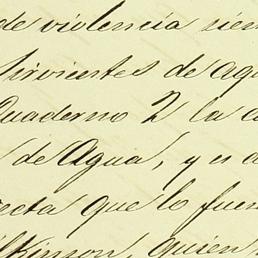 de violencia sien
Sirvientes de agu
Quaderno 2 la c
de Agua, y u a
ecta que lo fuer
lkinson, quien